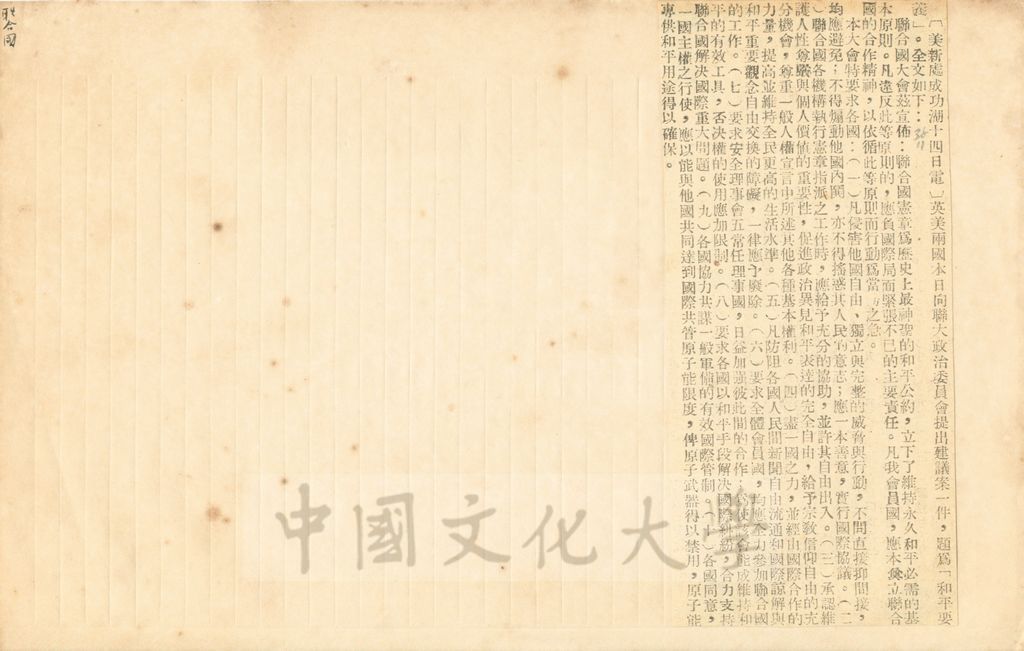 聯合國
〔美新處成功湖十四日電〕英美兩國本日向聯大政治委員會提出建議案一件，題爲「和平要
義」。全文如下：
聯合國大會茲宣佈：聯合國憲章爲歷史上最神聖的和平公約，立下了維持永久和平必需的基
本原則。凡違反此等原則的，應負國際局面緊張不已的主要責任。凡我會員國，應本奠立聯合
國的合作精神，以依循此等原則而行動爲當 之急。
本大會特要求各國：（一）凡侵害他國自由、獨立與完整的威脅與行動，不問直接抑間接，
均應避免；不得煽動他國內鬨，亦不得搖惑其人民的意志；應一本善意，實行國際協議。（二
）聯合國各機構執行憲章指派之工作時，應給予充分的協助，並許其自由出入。（三）承認維
護人性尊嚴與個人價值的重要性，促進政治異見和平表達的完全自由，給予宗敎信仰自由的充
分機會，尊重一般人權宣言中所述其他各種基本權利。（四）盡一國之力，並經由國際合作的
力量，提高並維持全民更高的生活水準。（五）凡防阻各國人民間新聞自由流通和國際諒解與
和平重要觀念自由交換的障礙，一律應予廢除。（六）要求全體會員國，均應全力參加聯合國
的工作。（七）要求安全理事會五常任理事國，日益加强彼此間的合作， 使該會能成維持和
平的有效工具，否決權的使用應加限制。（八）要求各國以和平手段解決國際糾紛，合力支持
聯合國解決國際重大問題。（九）各國協力共謀一般軍備的有效國際管制。（十）各國同意，
一國主權之行使，應以能與他國共同達到國際共管原子能限度，俾原子武器得以禁用，原子能
專供和平用途得以確保。
中國文化大學